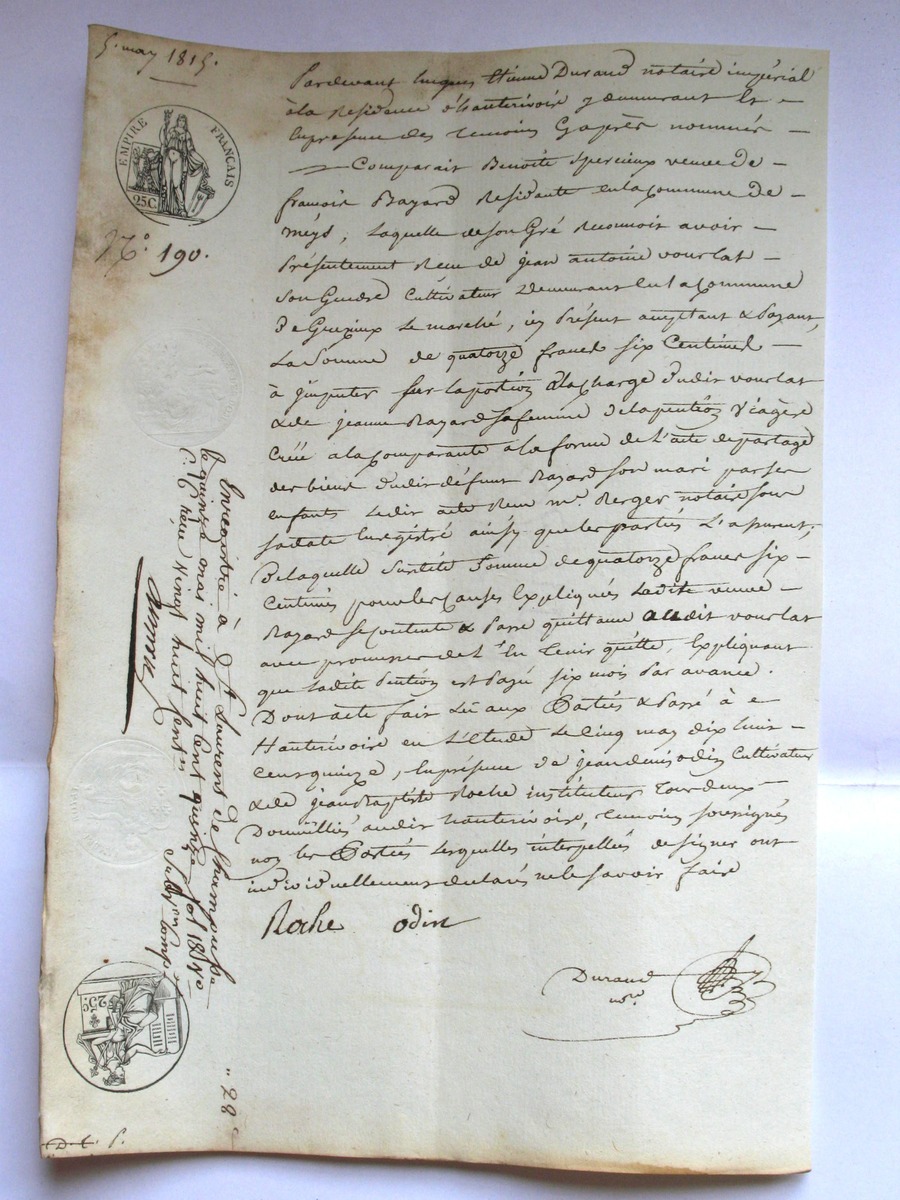 5. may 1815.
EMPIRE FRANÇAIS
25C.
N.º 190.
Pardevant hugues Etienne Durand notaire impérial
à la Residence d'hauterivoire y demeurant Et
En presence des temoins Cy après nommés
Comparait Benoite Spercieux veuve de
francois Bayard Residante en la Commune de
méys, laquelle de son Gré Reconnoit avoir
Présentement Recu de jean antoine vourlat
son Gendre Cultivateur Demeurant en la Commune
De Grezieux Le marché, icy Présent acceptant & Payant,
La Somme de quatorze francs six Centimes
à jmputer sur la portion à la Charge dudit vourlat
& de jeanne Bayard sa femme de la pention Viagère
Créé a la Comparante à la forme de L'acte de partage
des biens dudit défunt Bayard son mari par ses
enfants Ledit acte Recu mᵉ. Berger notaire sous
sa date Enregistré ainsy que les parties L'assurent;
De laquelle Susdité Somme de quatorze francs six
Centimes pour les Causes Expliqués Ladite veuve
Bayard se Contente & Passe quittance audit vourlat
avec promesse de L'En tenir quitte, Expliquant
que Ladite Pention est Payé six mois Par avance.
Dont acte fait Lû aux Parties & Passé à
Hauterivoire en L'Etude Le Cinq may dix huit
Cens quinze, En présence de jean denis odin Cultivateur
& de jean Baptiste Roche instituteur Tous deux
Domiciliés audit hauterivoire, temoins soussignés
non les Parties Lesquelles interpellées de signer ont
individuellement declarés ne le savoir faire
Roche odin
Durand
nʳᵉ
Enregistré à St Laurent de Chamousset
le quinze mai mil huit cent quinze fol 185 vº
C. 6 Reçu vingt huit centimes
25C.
" 28 c
D. t. P.